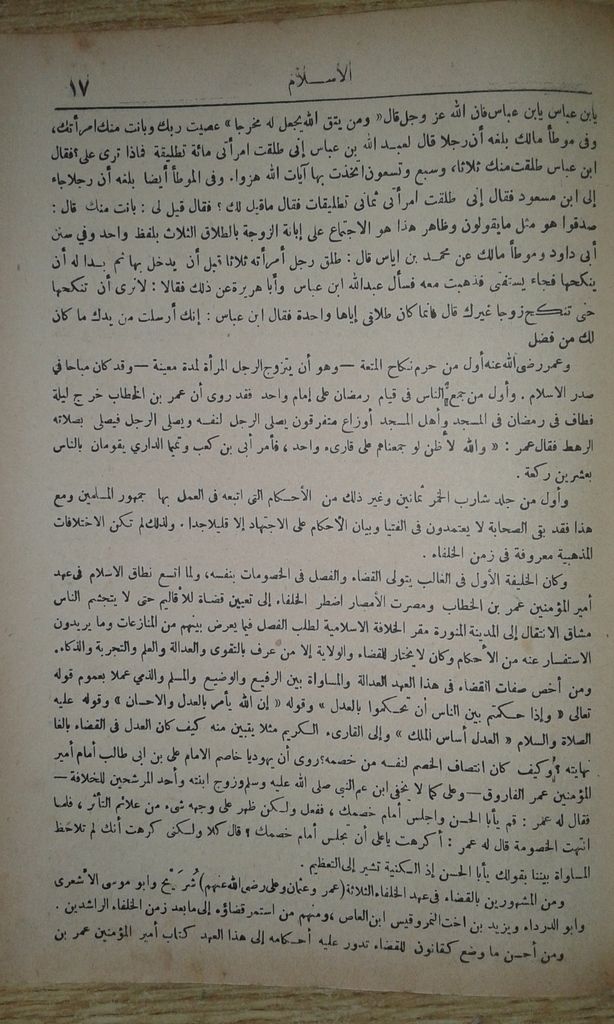 الأســـلام
١٧
يابن عباس يابن عباس فان الله عز وجل قال « ومن يتق الله يجعل له مخرجا » عصيت ربك وبانت منك امرأتك،
وفى موطأ مالك بلغه أن رجلا قال لعبد الله بن عباس إنى طلقت امرأتى مائة تطليقة فماذا ترى على؟ فقال
ابن عباس طلقت منك ثلاثا، وسبع وتسعون اتخذت بها آيات الله هزوا. وفى الموطأ أيضا بلغه أن رجلا جاء
إلى ابن مسعود فقال إنى طلقت امرأتى ثمانى تطليقات فقال ماقيل لك ؟ فقال قيل لى : بانت منك قال :
صدقوا هو مثل مايقولون وظاهر هذا هو الاجتماع على إبانة الزوجة بالطلاق الثلاث بلفظ واحد وفي سنن
أبى داود وموطأ مالك عن محمد بن اياس قال : طلق رجل امرأته ثلاثا قبل أن يدخل بها ثم بدا له أن
ينكحها فجاء يستفتى فذهبت معه فسأل عبدالله ابن عباس وأبا هريرة عن ذلك فقالا : لانرى أن تنكحها
حتى تنكح زوجا غيرك قال فانما كان طلاقى إياها واحدة فقال ابن عباس : إنك أرسلت من يدك ما كان
لك من فضل
وعمر رضى الله عنه أول من حرم نكاح المتعة — وهو أن يتزوج الرجل المرأة لمدة معينة — وقد كان مباحا في
صدر الاسلام . وأول من جمع الناس فى قيام رمضان على إمام واحد فقد روى أن عمر بن الخطاب خرج ليلة
فطاف فى رمضان فى المسجد وأهل المسجد أوزاع متفرقون يصلى الرجل لنفسه ويصلى الرجل فيصلى بصلاته
الرهط فقال عمر : « والله لأظن لو جمعناهم على قارىء واحد ، فأمر أبى بن كعب وتميما الدارى يقومان بالناس
بعشرين ركعة .
وأول من جلد شارب الخمر ثمانين وغير ذلك من الأحكام التى اتبعه فى العمل بها جمهور المسلمين ومع
هذا فقد بقى الصحابة لا يعتمدون فى الفتيا وبيان الأحكام على الاجتهاد إلا قليلا جدا . ولذلك لم تكن الاختلافات
المذهبية معروفة فى زمن الخلفاء .
وكان الخليفة الأول فى الغالب يتولى القضاء والفصل فى الخصومات بنفسه، ولما اتسع نطاق الاسلام فى عهد
أمير المؤمنين عمر بن الخطاب ومصرت الأمصار اضطر الخلفاء إلى تعيين قضاة للاقاليم حتى لا يتجشم الناس
مشاق الانتقال إلى المدينة المنورة مقر الخلافة الاسلامية لطلب الفصل فيما يعرض بينهم من المنازعات وما يريدون
الاستفسار عنه من الأحكام وكان لا يختار للقضاء والولاية إلا من عرف بالتقوى والعدالة والعلم والتجربة والذكاء.
ومن أخص صفات القضاء فى هذا العهد العدالة والمساواة بين الرفيع والوضيع والمسلم والذمي عملا بعموم قوله
تعالى « وإذا حكمتم بين الناس أن تحكموا بالعدل » وقوله « إن الله يأمر بالعدل والاحسان » وقوله عليه
الصلاة والسلام « العدل أساس الملك » وإلى القارىء الكريم مثلا يتبين منه كيف كان العدل فى القضاء بالغا
نهايته ؟ وكيف كان انتصاف الخصم لنفسه من خصمه؟ روى أن يهوديا خاصم الامام على بن ابى طالب أمام أمير
المؤمنين عمر الفاروق — وعلى كما لا يخفى ابن عم النبى صلى الله عليه وسلم وزوج ابنته وأحد المرشحين للخلافة —
فقال له عمر : قم يأبا الحسن واجلس أمام خصمك ، ففعل ولكن ظهر على وجهه شىء من علائم التأثر ، فلما
انتهت الخصومة قال له عمر : أكرهت ياعلى أن تجلس أمام خصمك ؟ قال كلا ولكنى كرهت أنك لم تلاحظ
المساواة بيننا بقولك يأبا الحسن إذ الكنية تشير إلى التعظيم .
ومن المشهورين بالقضاء فى عهد الخلفاء الثلاثة (عمر وعثمان وعلى رضى الله عنهم) شُرَيْحٌ وابو موسى الأشعرى
وابو الدرداء ويزيد بن اخت النمر وقيس ابن العاص ، ومنهم من استمر قضاؤه إلى مابعد زمن الخلفاء الراشدين .
ومن أحسن ما وضع كقانون للقضاء تدور عليه أحكامه إلى هذا العهد كتاب أمير المؤمنين عمر بن